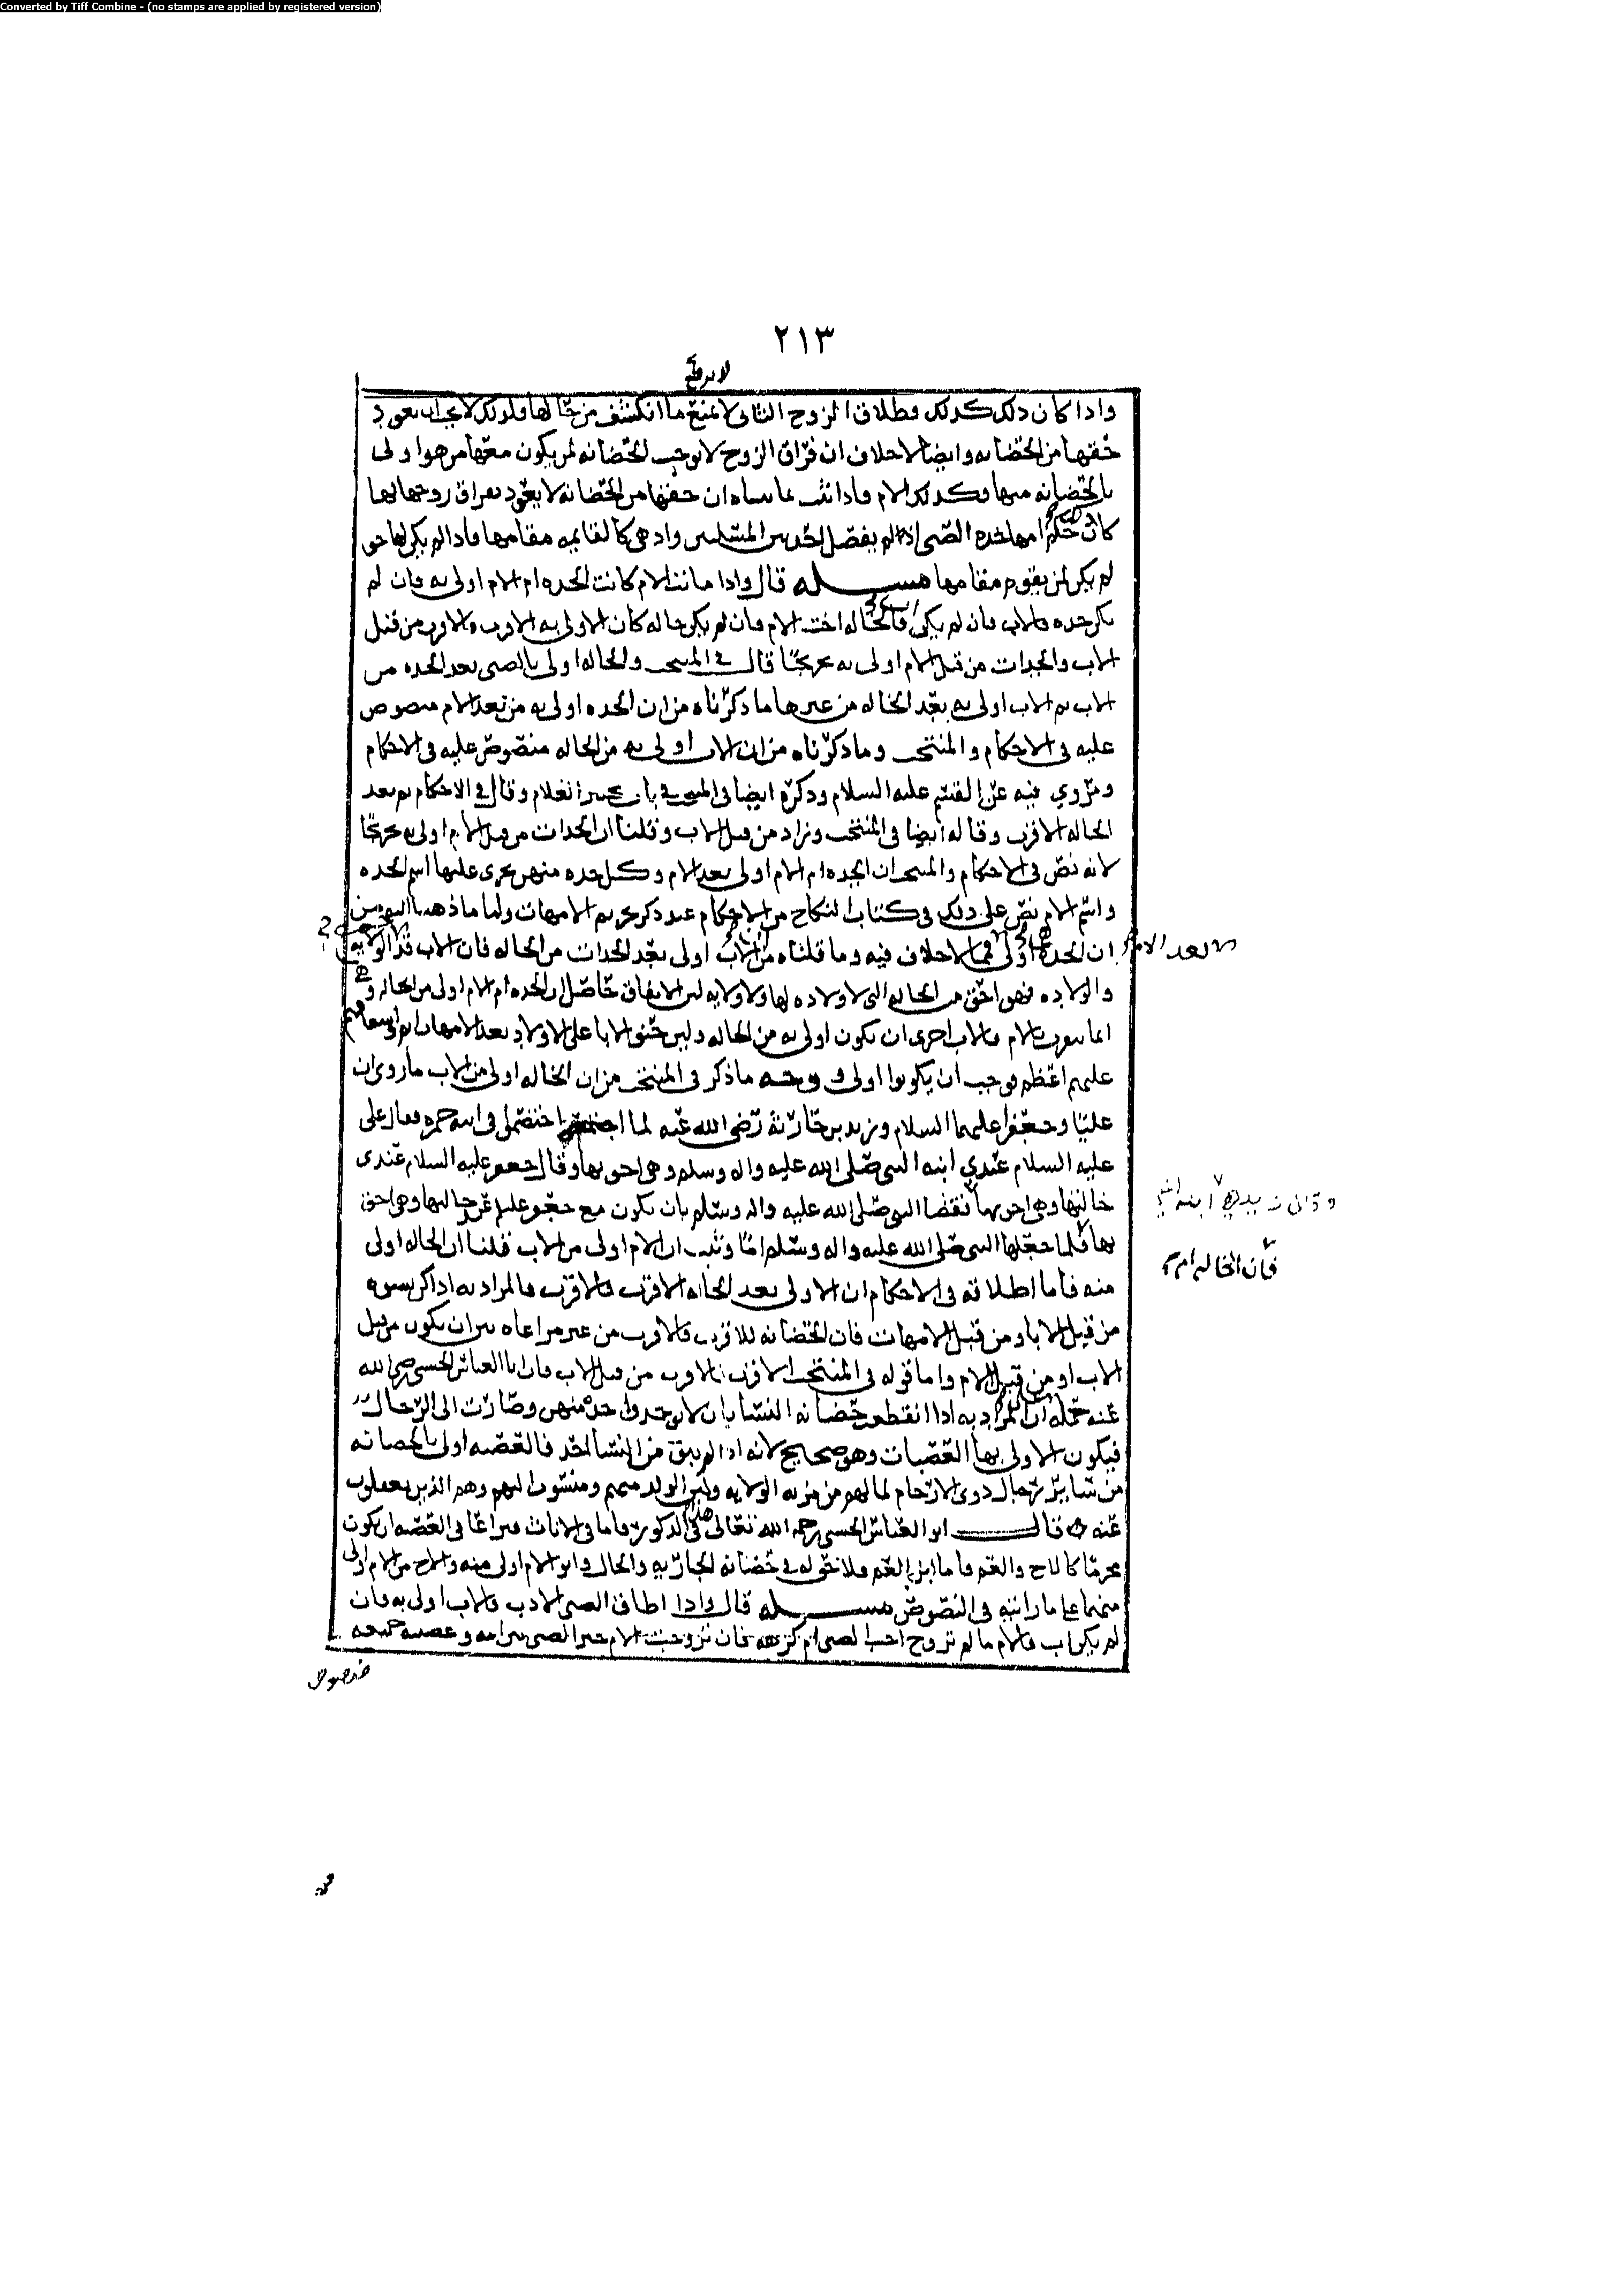 Converted by Tiff Combine - (no stamps are applied by registered version)
٢١٣
لا يرفع
واذا كان ذلك كذلك فطلاق الزوج الثاني لا يمنع ما انكشف من حالها فلذلك لا يجب ان يعود
حقها من الحضانه وايضا لا خلاف ان فراق الزوج لا يوجب الحضانه لمن يكون معها من هو اولى
بالحضانه منها وكذلك الام فاذا ثبت بما بيناه ان حقها من الحضانه لا يعود بفراق زوجها لها
كان حكم امها لجده الصبي اذ لم يفصل احد بين المسئلتين واذ هي كالقايمه مقامها فاذا لم يكن لها حق
لم يكن لمن يقوم مقامها مسئله قال واذا ماتت الام كانت الجده ام الام اولى به فان لم
يكن جده فالاب فان لم يكن فالخاله اخت الام فان لم يكن خاله كان الاولى به الاقرب فالاقرب من قبل
الاب والجدات من قبل الام اولى به تخريجا قال في المنتخب والخاله اولى بالصبي بعد الجده من
الاب ثم الاب اولى به بعد الخاله من غيرها ما ذكرناه من ان الجده اولى به من بعد الام منصوص
عليه في الاحكام والمنتخب وما ذكرناه من ان الاب اولى به من الخاله منصوص عليه في الاحكام
ومروي فيه عن القسم عليه السلام وذكره ايضا في المنتخب في باب تخيير الغلام وقال في الاحكام ثم بعد
الخاله الاقرب وقاله ايضا في المنتخب وزاد من قبل الاب وقلنا ان الجدات من قبل الام اولى به تخريجا
لانه نص في الاحكام والمنتخب ان الجده ام الام اولى بعد الام وكل جده منهن يجرى عليها اسم الجده
واسم الام نص على ذلك في كتاب النكاح من الاحكام عند ذكر تحريم الامهات ولما ما ذهبنا اليه من
ان الجده اولى بعد الام فمما لا خلاف فيه وما قلناه من ان الاب اولى بعد الجدات من الخاله فان الاب له الولايه
والولاده فهو احق من الخاله التي لا ولاده لها ولا ولايه لان الاتفاق حاصل ان الجده ام الام اولى من الخاله
فالاب احرى ان يكون اولى به من الخاله ولان حنو الابا على الاولاد بعد الامهات
عليهم اعظم فوجب ان يكونوا اولى ووجه ما ذكر في المنتخب من ان الخاله اولى من الاب ما روي ان
عليا وجعفرا عليهما السلام وزيد بن حارثة رضي الله عنه لما اختصموا في ابنه حمزه فقال علي
عليه السلام عندي ابنه النبي صلى الله عليه واله وسلم وهي احق بها وقال جعفر عليه السلام عندى
خالتها وهي احق بها فقضا النبي صلى الله عليه واله وسلم بان تكون مع جعفر عليه السلام عند خالتها وهي احق
وقال زيد ابنه اخي
بها فلما جعلها النبي صلى الله عليه واله وسلم اما وثبت ان الام اولى من الاب قلنا ان الخاله اولى
فان الخاله ام
منه فاما اطلاقه في الاحكام ان الاولى بعد الخاله الاقرب فالاقرب فالمراد به اذا كن نسوه
من قبل الابا ومن قبل الامهات فان الحضانه للاقرب فالاقرب من غير مراعاه بين ان يكون من قبل
الاب او من قبل الام واما قوله في المنتخب الاقرب فالاقرب من قبل الاب فان ابا العباس الحسني رضي الله
عنه حمله على ان المراد به اذا انقطع حضانه النسا بان لا يوجد واحده منهن وصارت الى الرجال
فيكون الاولى بها العصبات وهو صحيح لانه اذا لم يبق من النسا احد فالعصبه اولى بالحضانه
من سائر رجال ذوي الارحام لما لهم من مزيه الولايه ولان الولد منهم ومنسوب اليهم وهم الذين يعقلون
عنه قال ابو العباس الحسني رحمه الله تعالى هذا في الذكور فاما في الاناث فيراعا في العصبه ان يكون
محرما كالاخ والعم فاما ابن العم فلا حق له في حضانه الجاريه والخال وابو الام اولى منه والاخ من الام اولى
منهما على ما رايته في النصوص مسئله قال واذا اطاق الصبي الادب فالاب اولى به فان
لم يكن اب فالام ما لم تزوج احب الصبي ام كره فان تزوجت الام خير الصبي بين امه وعصبته